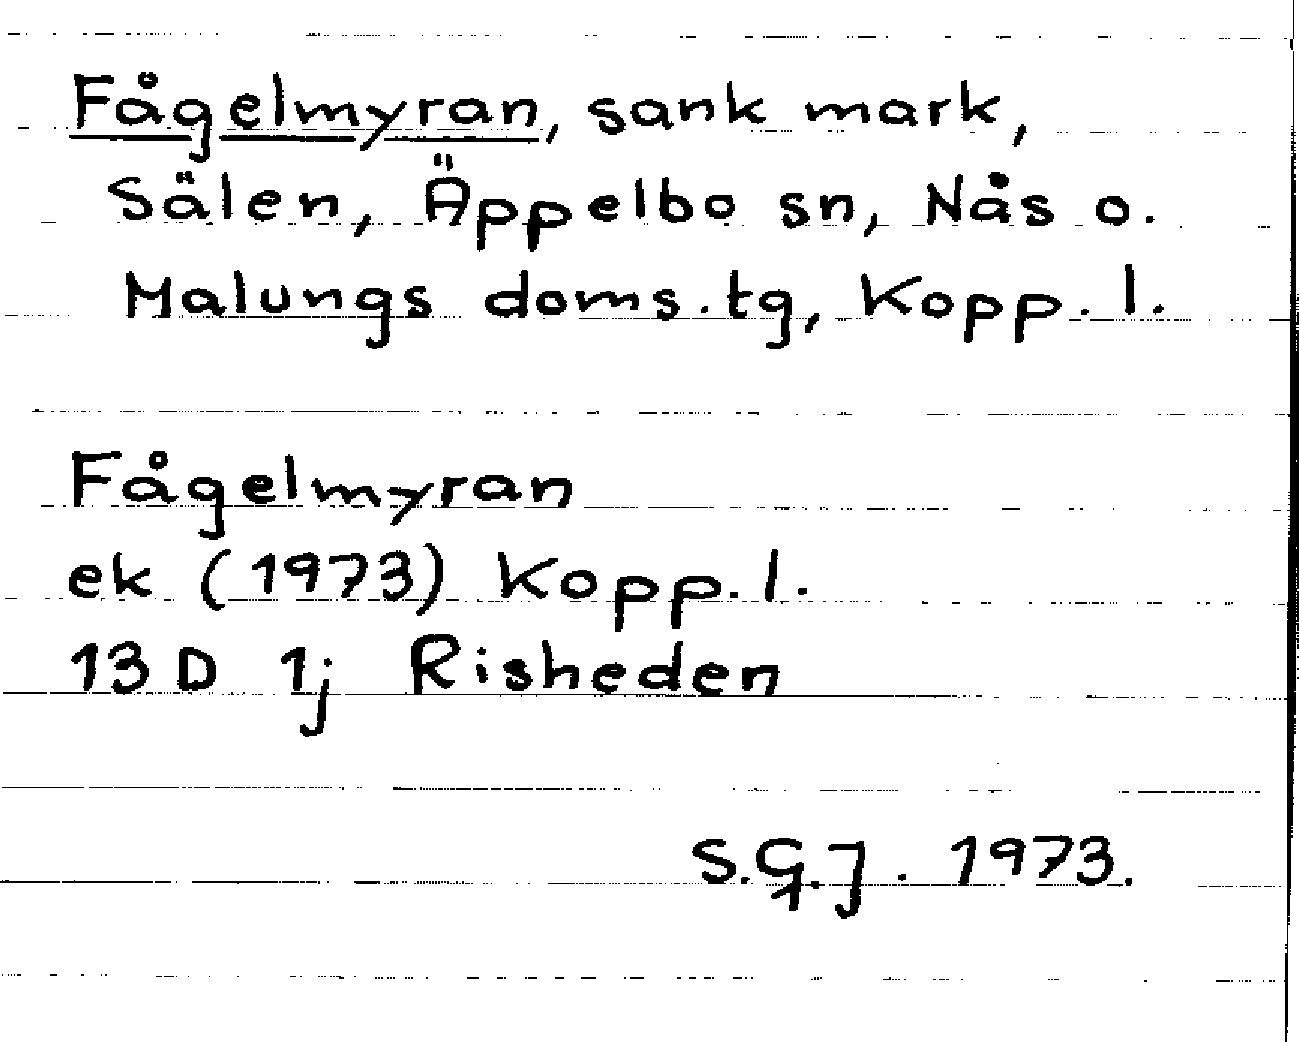 Fågelmyran, sank mark,
Sälen, Äppelbo sn, Nås o.
Malungs doms.tg, Kopp. l.
Fågelmyran
ek (1973) Kopp. l.
13 D 1j Risheden
S.G.J. 1973.